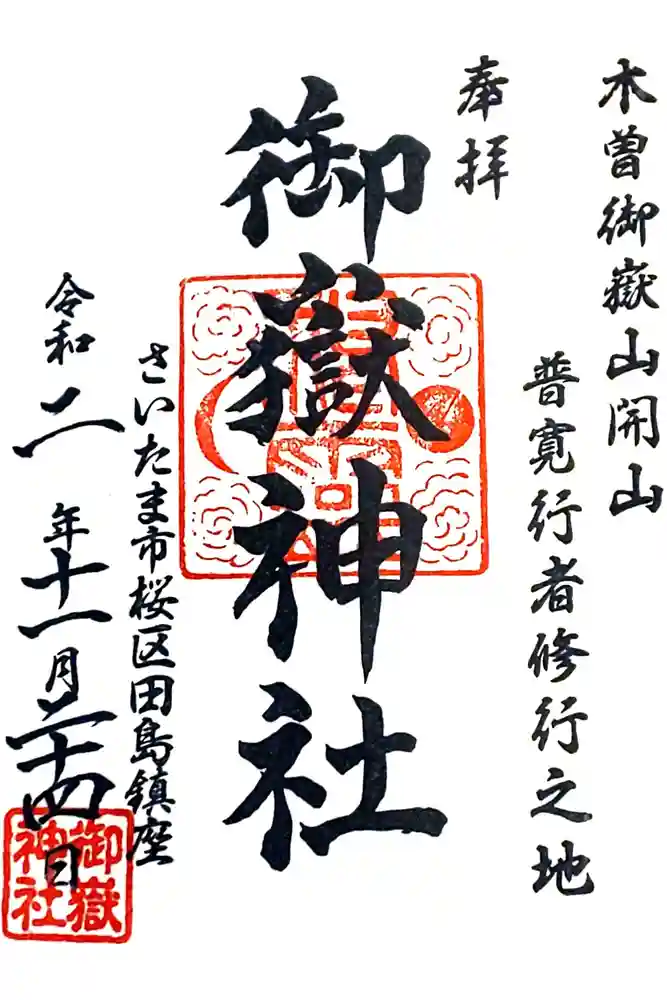 木曽御嶽山開山
普寛行者修行之地
奉拝
御嶽神社
さいたま市桜区田島鎮座
令和二年十一月二十四日
御嶽
神社